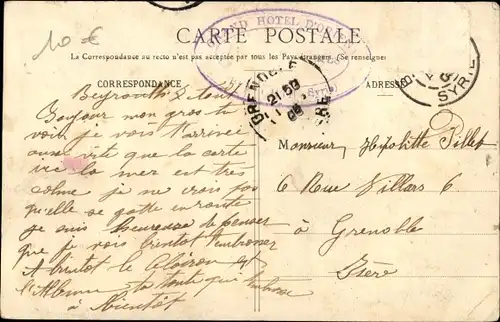 10 €
CARTE POSTALE
La Correspondance au recto n'est pas acceptée par tous les Pays étrangers. (Se renseigner
GRAND HOTEL D'OR
(Syrie)
CORRESPONDANCE
ADRESSE
GRENOBLE
ISÈRE
SYRIE
Beyrouth 2 Aout
Bonjour mon gros
voir je vois t'arriver
aussi vite que la carte
la mer est très
calme je ne crois pas
qu'elle se gatte en route
je suis heureuse de penser
que je vois bientot t'embrasser
A bientot le Clairon est
ta toute que t'embrasse
à Bientôt
Monsieur Hipolitte Pillet
6 Rue Villars 6
à Grenoble
Isère